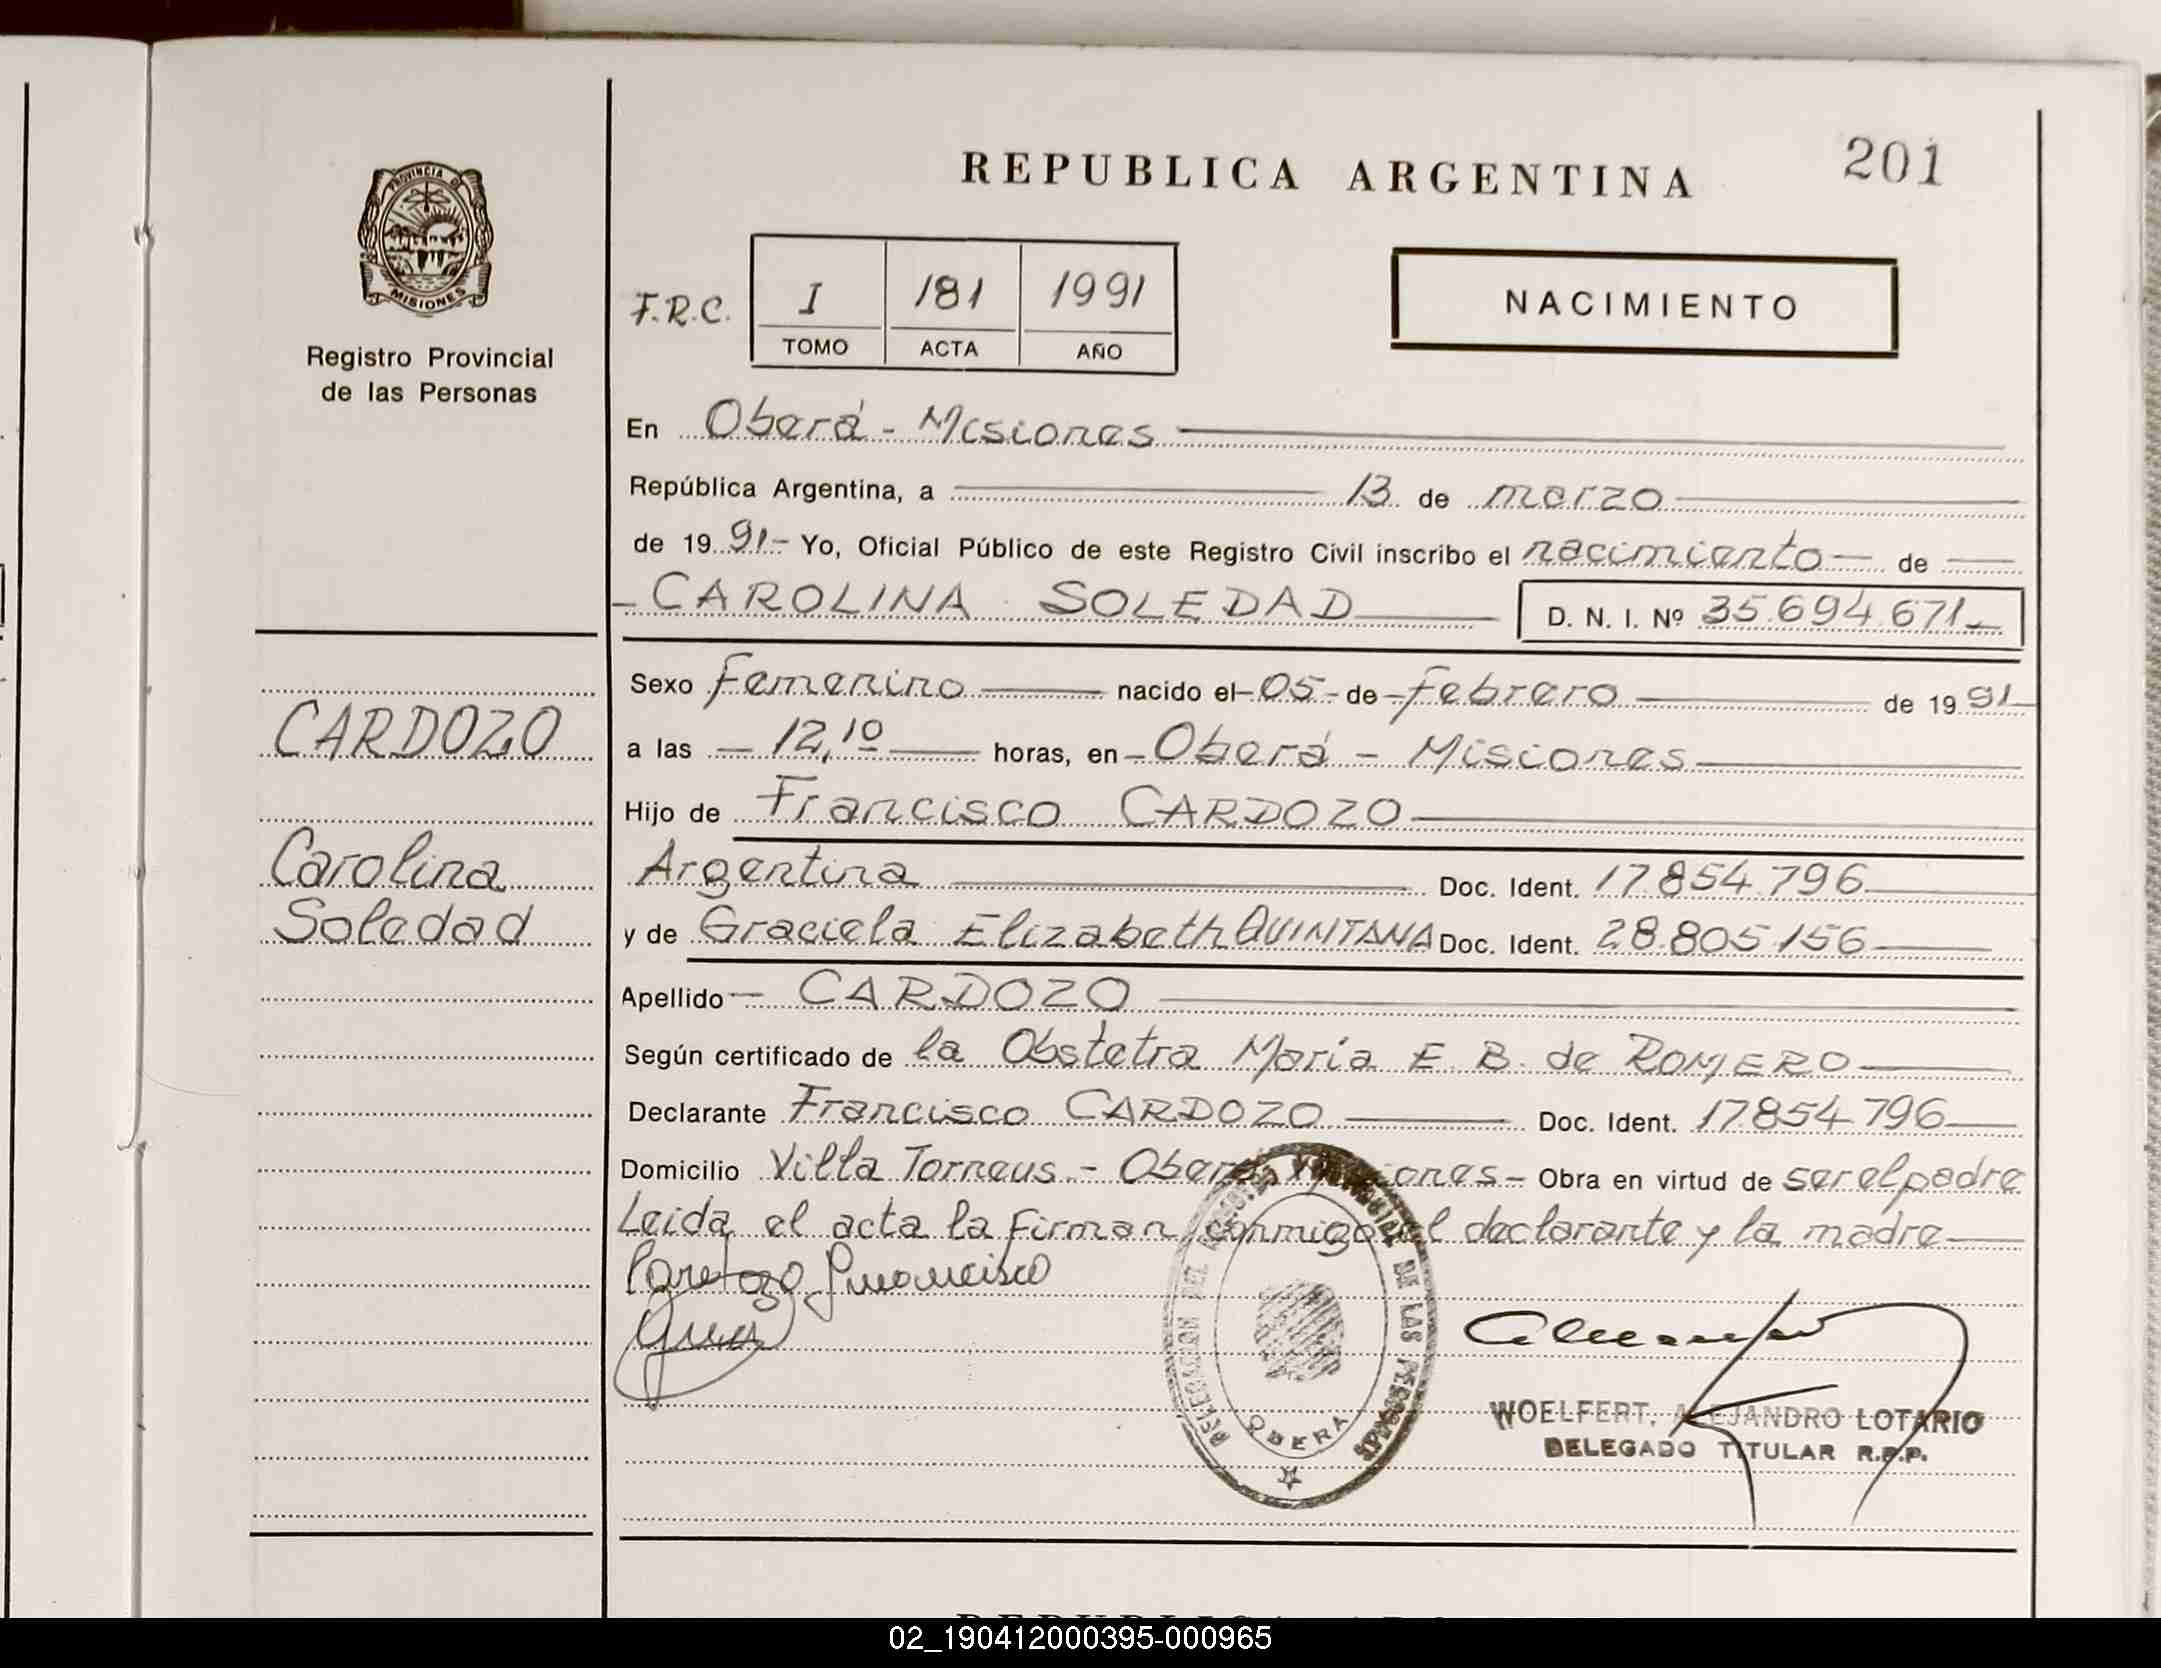 REPUBLICA ARGENTINA
201
PROVINCIA DE
MISIONES
Registro Provincial
de las Personas
F.R.C.
I 181 1991
TOMO ACTA AÑO
NACIMIENTO
En Oberá - Misiones
República Argentina, a 13 de marzo
de 1991- Yo, Oficial Público de este Registro Civil inscribo el nacimiento de
CAROLINA SOLEDAD D. N. I. Nº 35.694.671
Sexo Femenino nacido el 05 de febrero de 1991
CARDOZO
a las 12,10 horas, en Oberá - Misiones
Hijo de Francisco CARDOZO
Carolina
Argentina Doc. Ident. 17.854.796
Soledad
y de Graciela Elizabeth QUINTANA Doc. Ident. 28.805.156
Apellido CARDOZO
Según certificado de la Obstetra María E. B. de ROMERO
Declarante Francisco CARDOZO Doc. Ident. 17.854.796
Domicilio Villa Torneus - Oberá Misiones - Obra en virtud de ser el padre
Leida el acta la firman conmigo el declarante y la madre
DELEGACION DEL REGISTRO PROVINCIAL DE LAS PERSONAS
OBERA
WOELFERT, ALEJANDRO LOTARIO
DELEGADO TITULAR R.P.P.
02_190412000395-000965